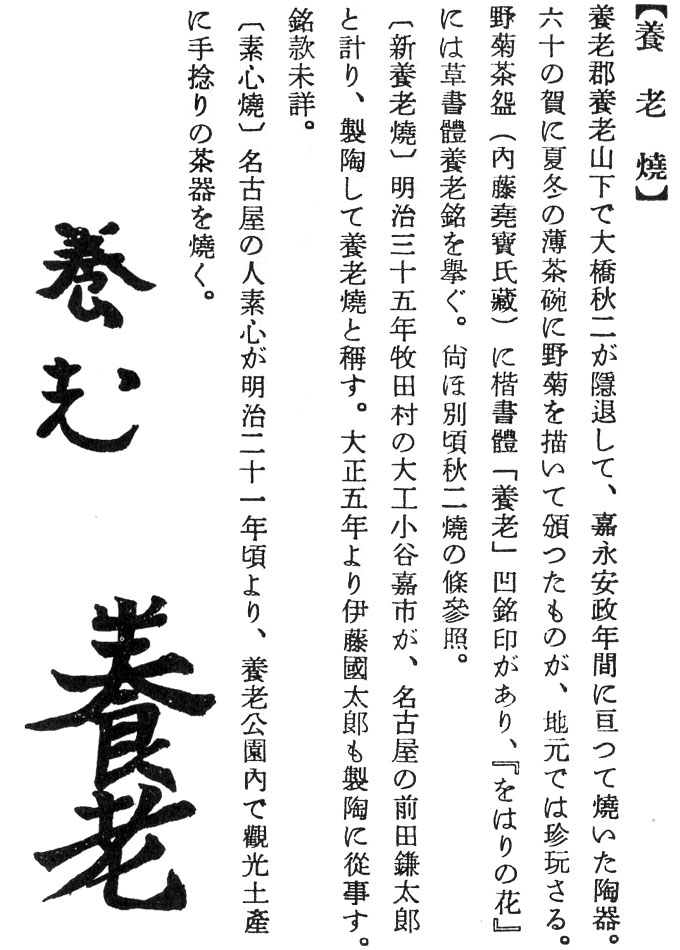 【養老燒】
養老郡養老山下で大橋秋二が隱退して、嘉永安政年間に亘つて燒いた陶器。
六十の賀に夏冬の薄茶碗に野菊を描いて頒つたものが、地元では珍玩さる。
野菊茶盌（內藤堯寶氏藏）に楷書體「養老」凹銘印があり、『をはりの花』
には草書體養老銘を擧ぐ。尙ほ別頃秋二燒の條參照。
〔新養老燒〕明治三十五年牧田村の大工小谷嘉市が、名古屋の前田鎌太郎
と計り、製陶して養老燒と稱す。大正五年より伊藤國太郎も製陶に從事す。
銘款未詳。
〔素心燒〕名古屋の人素心が明治二十一年頃より、養老公園內で觀光土產
に手捻りの茶器を燒く。
養老
養老